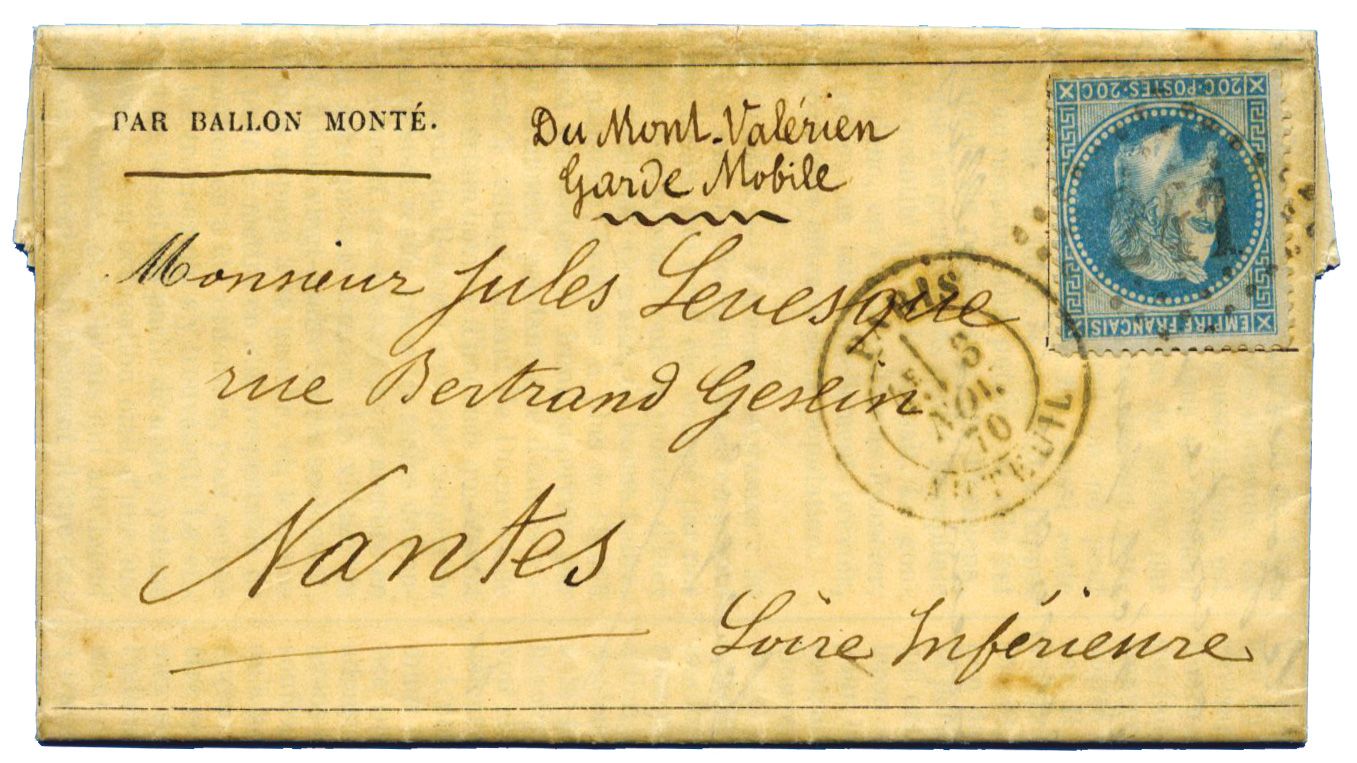 PAR BALLON MONTÉ.
Du Mont-Valérien
Garde Mobile
Monsieur Jules Levesque
rue Bertrand Geslin
Nantes
Loire Inférieure
PARIS
3
NOV.
70
AUTEUIL
20C·POSTES·20C
EMPIRE FRANÇAIS